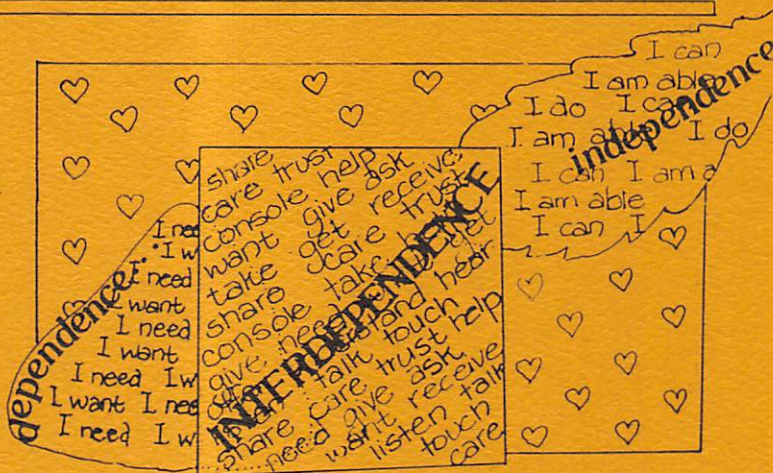 I can
I am able
I do I can
I am able I do
I can I am a
I am able
I can I
independence
share
care trust
console help
want give ask
take get receive
share care trust
console take
give need get
hear
talk touch
share care trust help
need give ask
want receive
listen talk
touch
care
INTERDEPENDENCE
I nee
I w
I need
I want
I need
I want
I need I w
I want I nee
I need I w
dependence